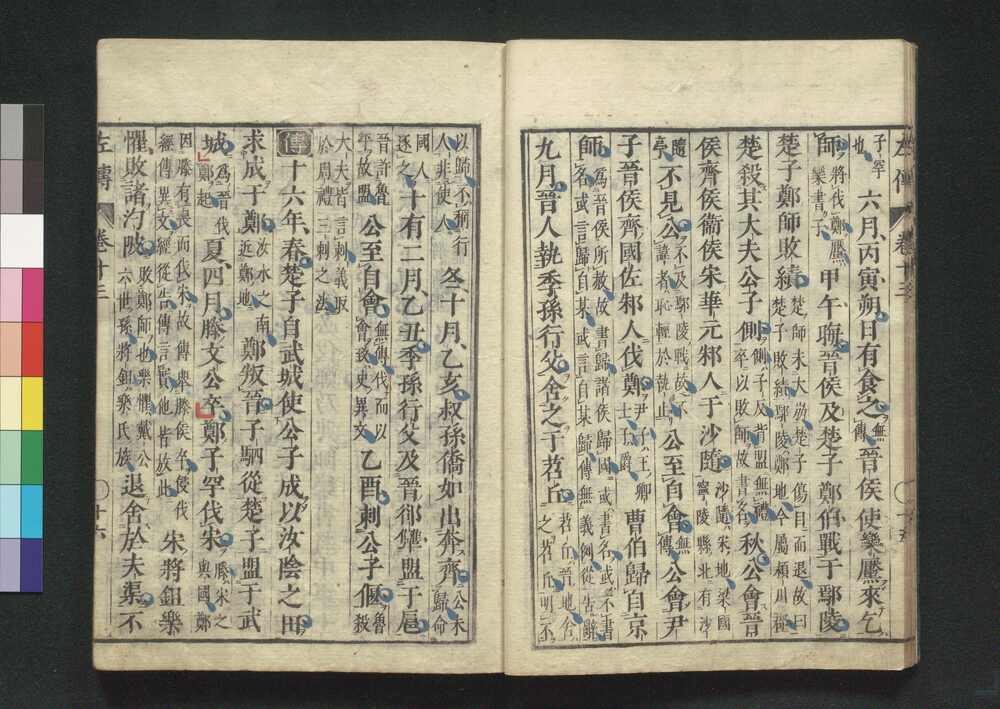 左傳 卷十三 十五
子罕也六月丙寅朔日有食之無傳晉侯使欒黶來乞
師將伐鄭黶欒書子甲午晦晉侯及楚子鄭伯戰于鄢陵
楚子鄭師敗績楚師未大崩楚子傷目而退故曰楚子敗績鄢陵鄭地今屬頴川郡
楚殺其大夫公子側側子反背盟無禮卒以敗師故書名秋公會晉
侯齊侯衞侯宋華元邾人于沙隨沙隨宋地梁國寧陵縣北有沙
隨亭不見公不及鄢陵戰故不諱者恥輕於執止公至自會無傳公會尹
子晉侯齊國佐邾人伐鄭尹子王卿士子爵曹伯歸自京
師為晉侯所赦故書歸諸侯歸國或書名或不書名或言歸自某或言自某歸傳無義例從告辭
九月晉人執季孫行父舍之于苕丘苕丘晉地舍之苕丘明不
以歸不稱行人非使人冬十月乙亥叔孫僑如出奔齊公未歸命
國人逐之十有二月乙丑季孫行父及晉郤犨盟于扈
晉許魯平故盟公至自會無傳伐而以會致史異文乙酉刺公子偃魯殺
大夫皆言刺義取於周禮三刺之法
傳十六年春楚子自武城使公子成以汝陰之田
求成于鄭汝水之南近鄭地鄭叛晉子駟從楚子盟于武
城為晉伐鄭起夏四月滕文公卒鄭子罕伐宋滕宋之與國鄭
因滕有喪而伐宋故傳舉滕侯卒侵伐經傳異文經從告傳言實他皆放此宋將鉏樂
懼敗諸汋陂敗鄭師也樂懼戴公六世孫將鉏樂氏族退舍於夫渠不
左傳 卷十三 十六